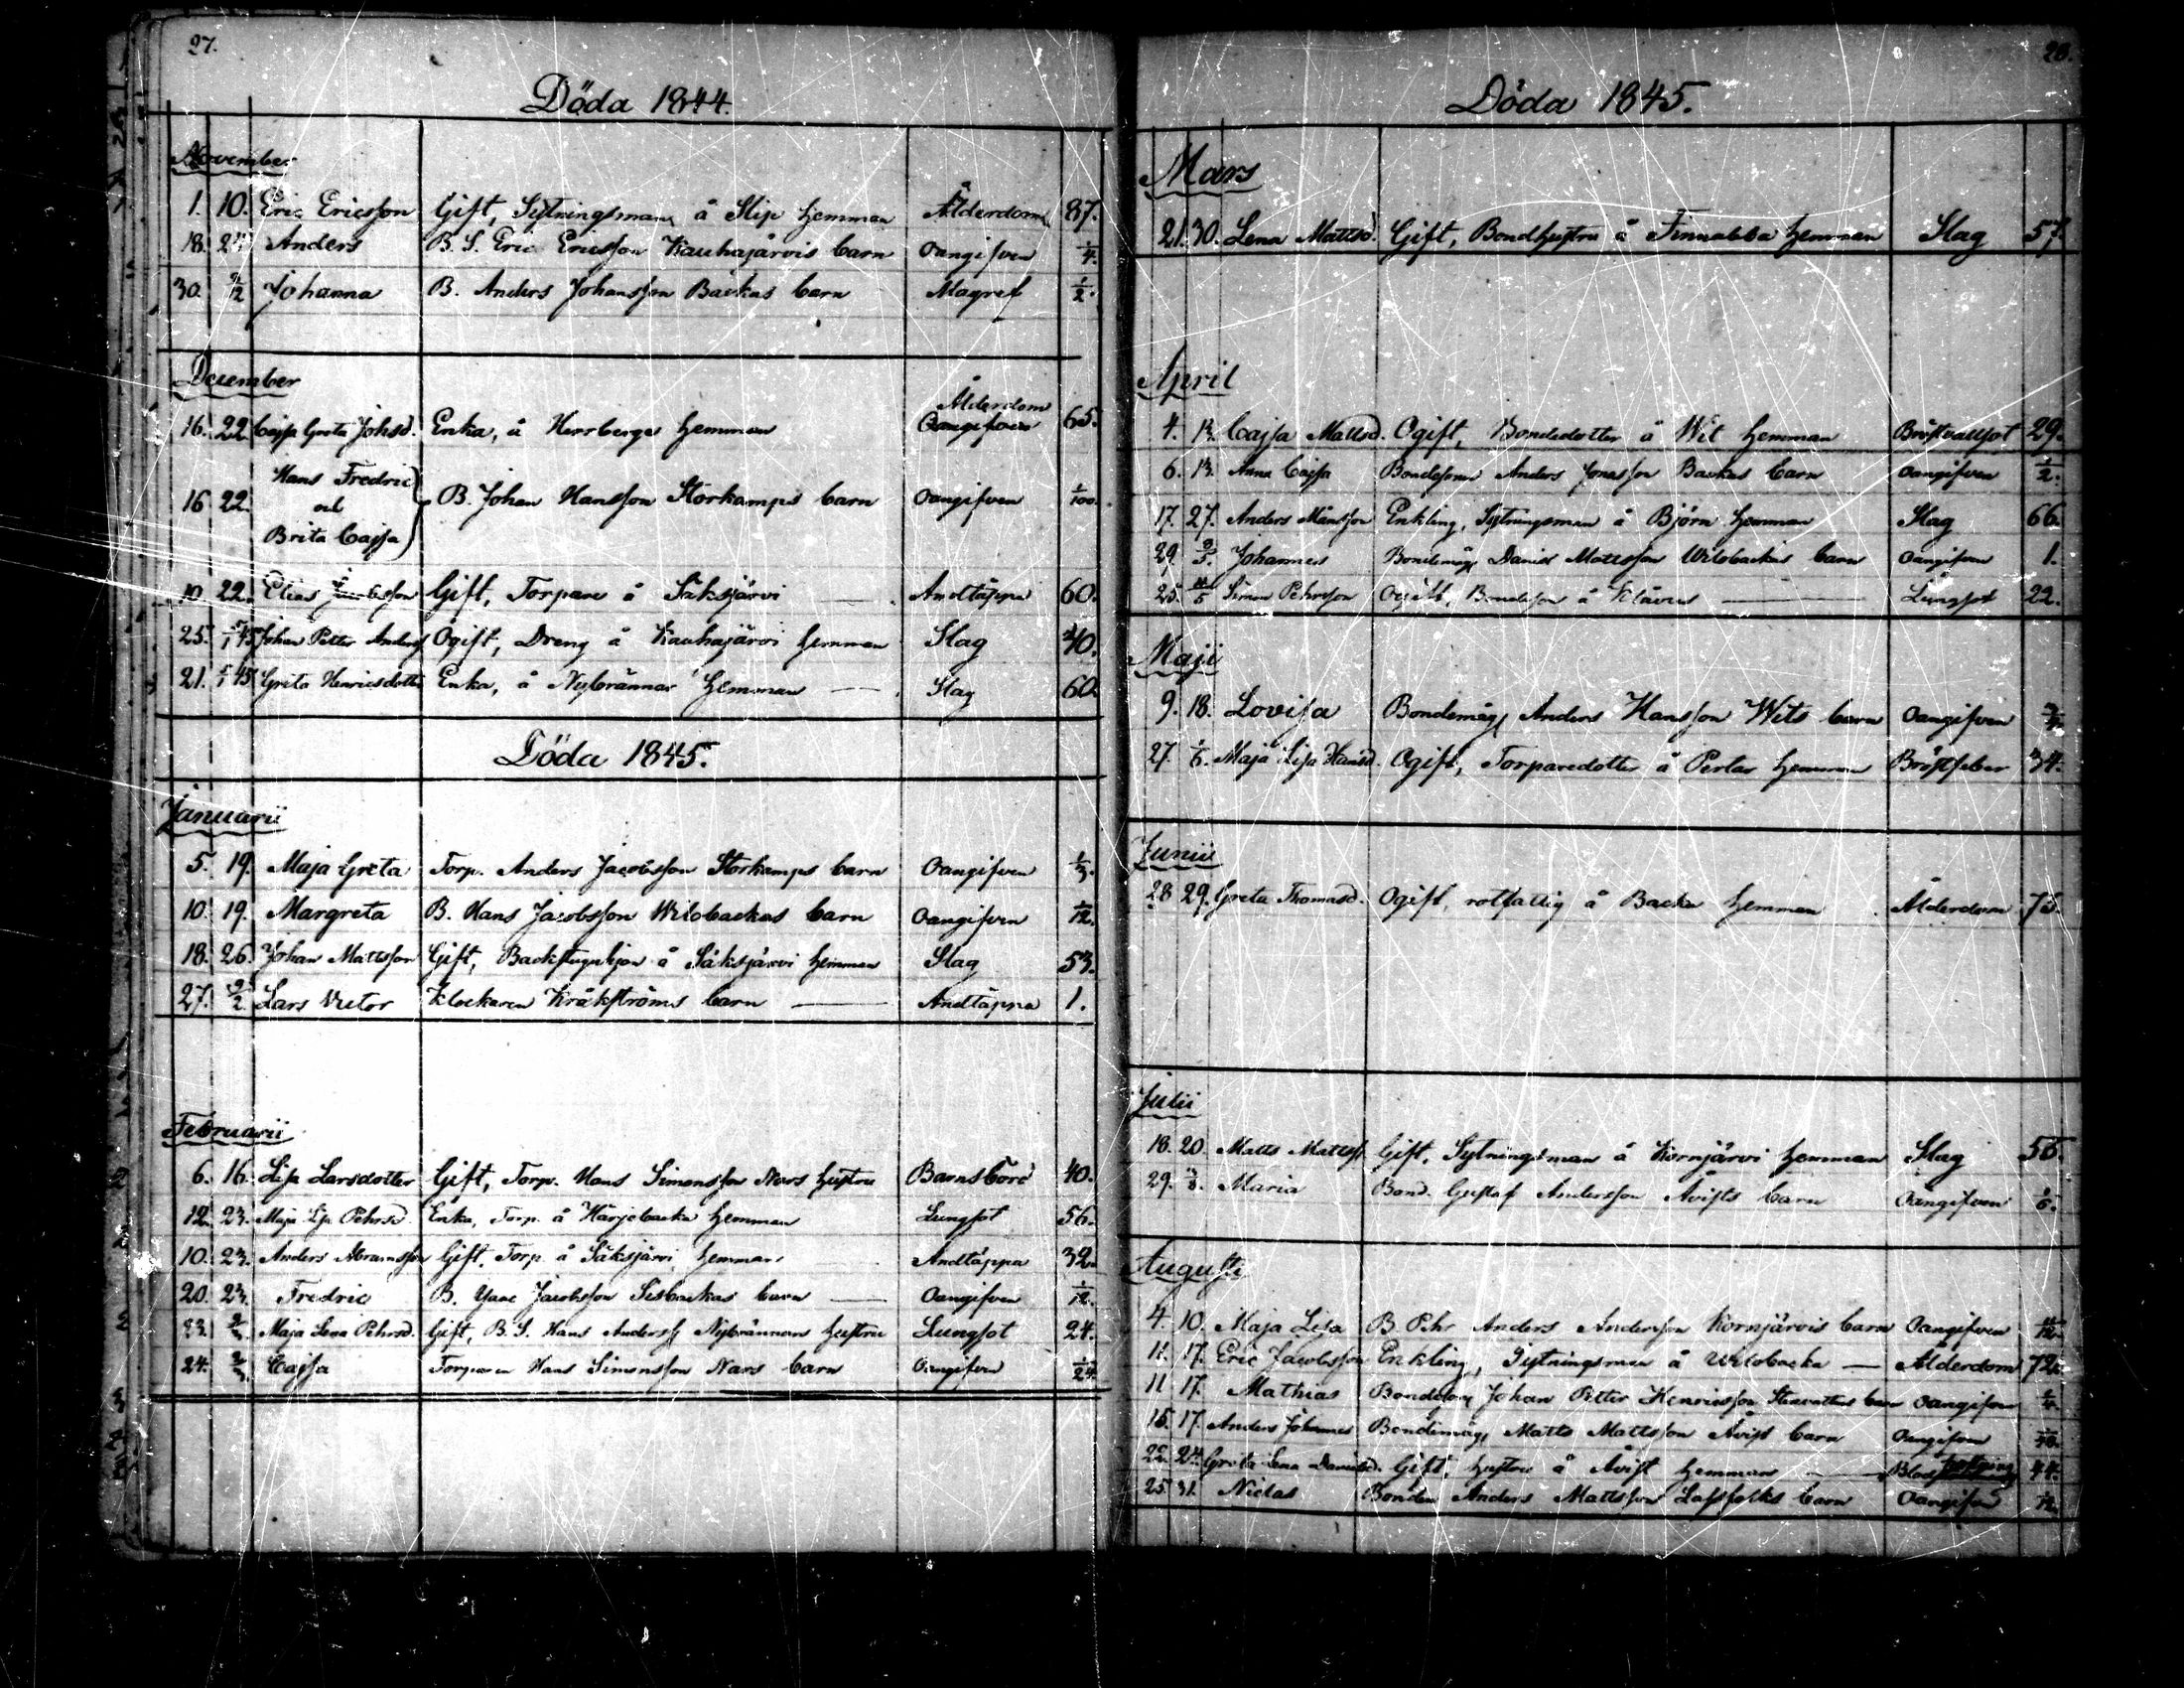 27.
Döda 1844.
November
1. 10. Eric Ericsson Gift, Sytningsman å Slip hemman Ålderdom 87.
18. 24 Anders B. S. Eric Ericsson Kauhajärvis barn Oangifven 1/4.
30. Johanna B. Anders Johansson Backas barn Magref 1/2.
December
Ålderdom
16. 22. Cajsa Greta Johsd. Enka, å Herrberga hemman Oangifven 65.
Hans Fredric
16 22. och B. Johan Hansson Storkamps barn Oangifven 1/100.
Brita Cajsa
10. 22. Elias Gift, Torpare å Säksjärvi Andtäppa 60.
25. Johan Petter Anders Ogift, Dreng å Kauhajärvi hemman Slag 40.
21. Greta Henricsdotter Enka, å Nybrännar hemman Slag 60
Döda 1845.
Januarii
5. 19. Maja Greta Torp. Anders Jacobsson Storkamps barn Oangifven 1/3.
10. 19. Margreta B. Hans Jacobsson Wilobackas barn Oangifven 1/12.
18. 26. Johan Mattsson Gift, å Säksjärvi hemman Slag 53.
27. 2/2 Lars Victor Klockaren Kråkströms barn Andtäppa 1.
Februarii
6. 16. Lisa Larsdotter Gift, Torp. Hans Simonsson Nars hustru Barnsbörd 40.
12. 23. Maja Lisa Pehrsd. Enka, Torp. å Härjebacka hemman Lungsot 56.
10. 23. Anders Abramsson Gift, Torp. å Säksjärvi hemman Andtäppa 32.
20. 23. Fredric B. Jacobsson Sisbackas barn Oangifven 1/12.
23. 2/3 Maja Lena Pehrsd. Gift, B. S. Hans Anderss Nybrännars hustru Lungsot 24.
24. 2/3 Cajsa Torparen Hans Simonsson Nars barn Oangifven 1/24
28.
Döda 1845.
Mars
21. 30. Lena Mattsd. Gift, Bondhustru å Finnabba hemman Slag 57.
April
4. 13. Cajsa Mattsd. Ogift, Bondedotter å Wit hemman 29.
6. 13. Anna Cajsa Bondesonen Anders Jonasson Backas barn Oangifven 1/2.
17. 27. Anders Månsson Enkling, Sytningsman å Björn hemman Slag 66.
29. Johannes Bondemåg David Mattsson Wilobackas barn Oangifven 1.
25. Simon Pehrsson Ogift, Bondeson å Klåvus Lungsot 22.
Maji
9. 18. Lovisa Bondemåg Anders Hansson Wits barn Oangifven
27. Maja Lisa Hansd. Ogift, Torparedotter å Perlar hemman Bröstfeber 34.
Junii
28 29. Greta Thomasd. Ogift, rotfattig å Backa hemman Ålderdom 75.
Julii
18. 20. Matts Mattss. Gift, Sytningsman å Kornjärvi hemman Slag 56.
29. Maria Bond. Gustaf Andersson Åvists barn Oangifven
Augusti
4. 10. Maja Lisa B. Anders Andersson Kornjärvis barn Oangifven 11/12.
11. 17. Eric Jacobsson Enkling, Sytningsman å Wilobacka Ålderdom 72.
11 17. Mathias Bondeson Johan Petter Henricsson barn Oangifven
15. 17. Anders Johannes Bondemåg Matts Mattsson Åvist barn Oangifven
22. 24. Greta Lena Danielsd. Gift, hustru å Åvist hemman 44.
25. 31. Niclas Bonden Anders Mattsson Lassfolks barn Oangifven 1/12